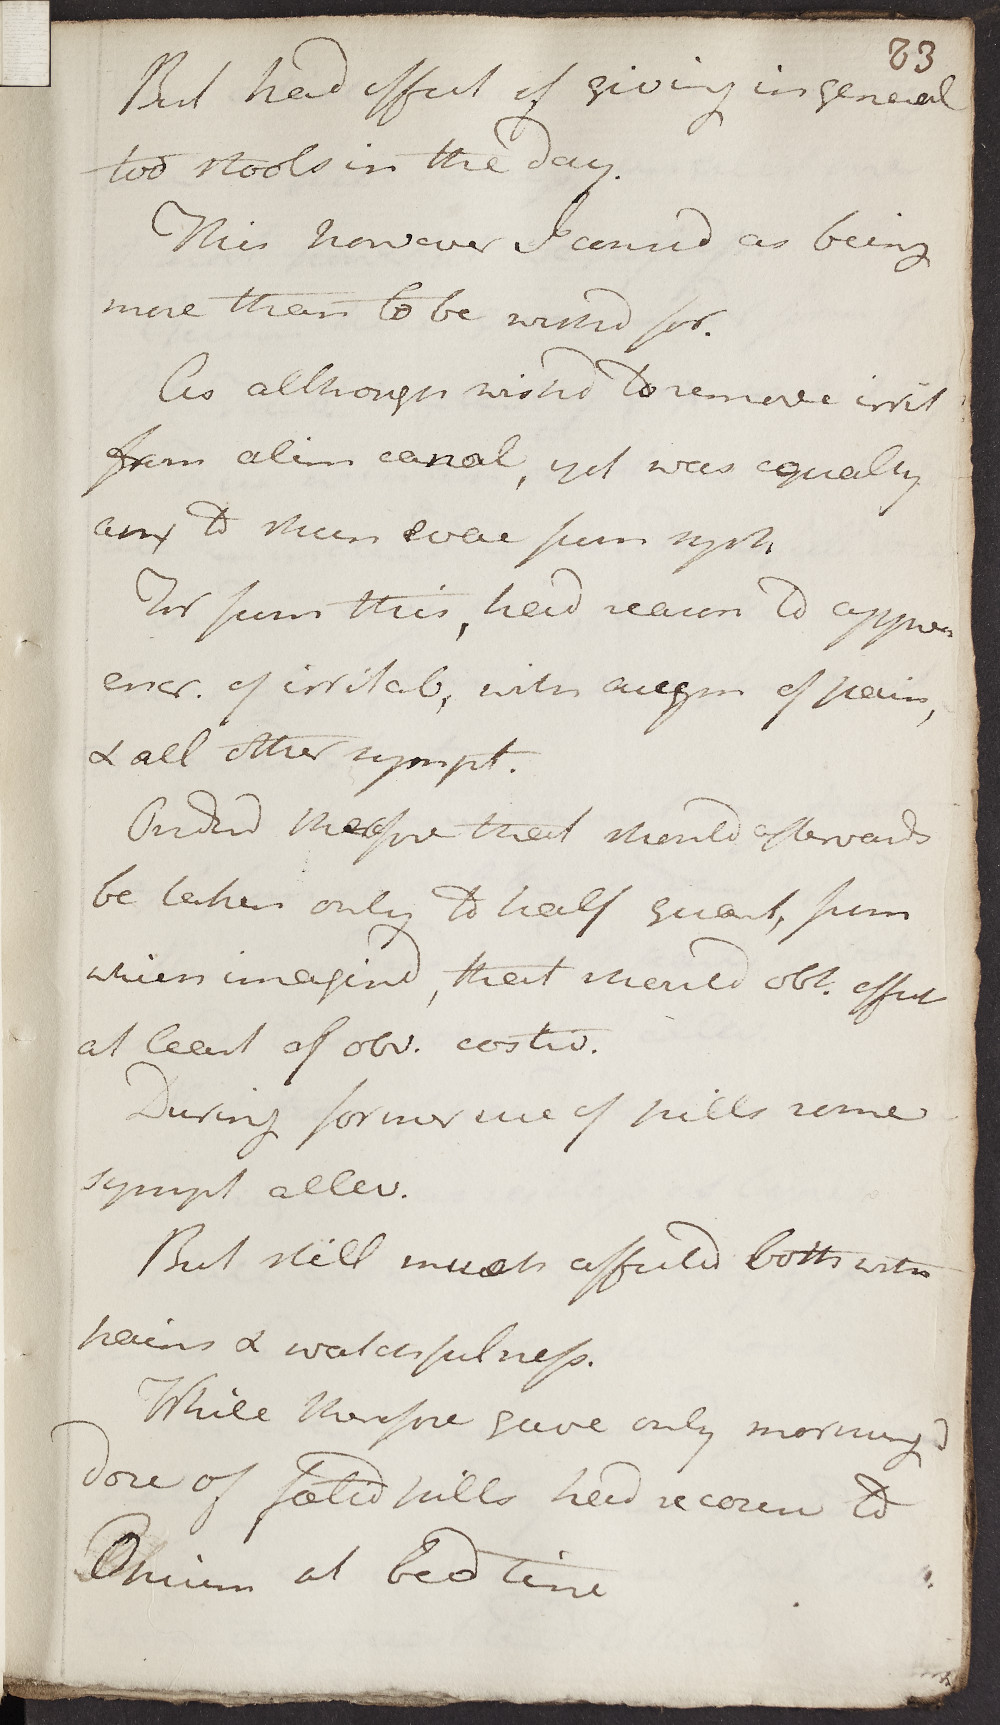 23
But had effect of giving in general
too stools in the day.
This however I consid as being
more than to be wishd for.
As although wishd to remove irrit
from alim canal, yet was equally
anx to shun evac from syst.
For from this, had reason to appreh
encr. of irritab, with augm of pain,
& all other sympt.
Orderd therefore that should afterwards
be taken only to half quant, from
which imagind, that should obt. effect
at least of obv. costiv.
During former use of pills some
sympt allev.
But still much affected both with
pains & watchfulness.
While therefore gave only morning
dose of fœtid pills had recourse to
Opium at bed time